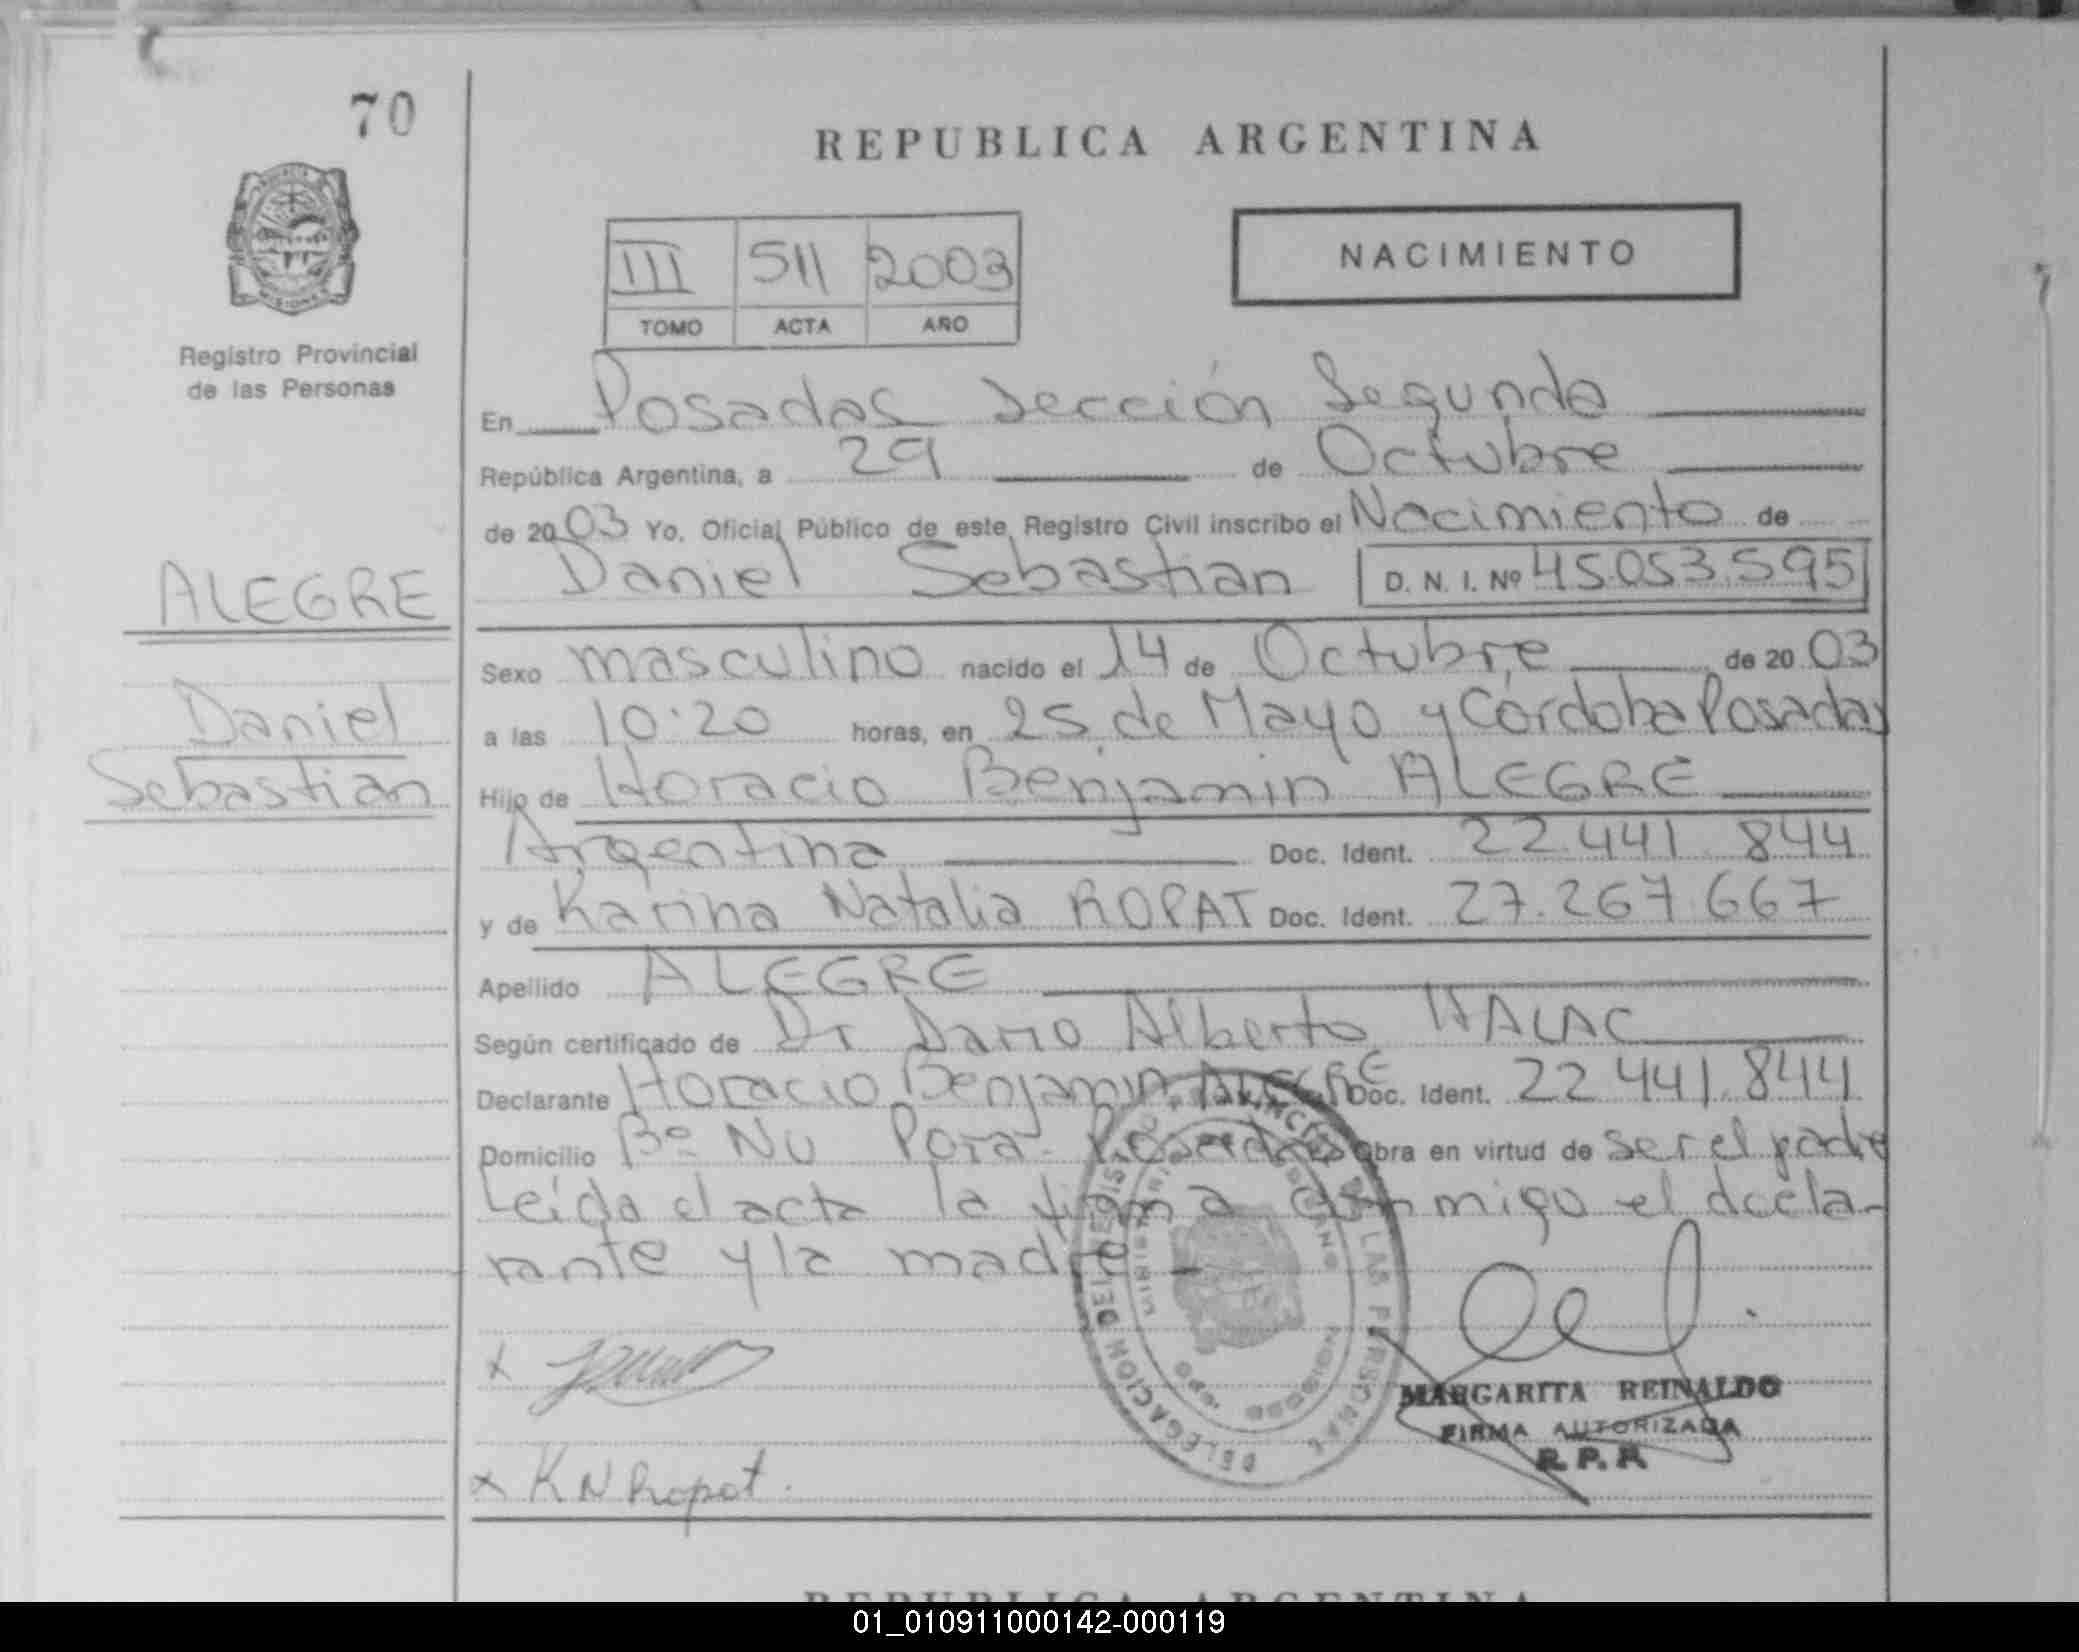 70
REPUBLICA ARGENTINA
MISIONES
Registro Provincial
de las Personas
III 511 2003
TOMO ACTA AÑO
NACIMIENTO
En Posadas Sección Segunda
República Argentina, a 29 de Octubre
de 2003 Yo, Oficial Público de este Registro Civil inscribo el Nacimiento de
Daniel Sebastian D. N. I. Nº 45.053.595
ALEGRE
Daniel
Sebastian
Sexo masculino nacido el 14 de Octubre de 2003
a las 10:20 horas, en 25 de Mayo y Córdoba Posadas
Hijo de Horacio Benjamin ALEGRE
Argentina Doc. Ident. 22.441.844
y de Karina Natalia ROPAT Doc. Ident. 27.267.667
Apellido ALEGRE
Según certificado de Dr Dario Alberto HALAC
Declarante Horacio Benjamin ALEGRE Doc. Ident. 22.441.844
Domicilio Bº Nu Pora - Posadas Obra en virtud de ser el padre
Leída el acta la firma conmigo el decla-
rante y la madre -
DELEGACION DEL REGISTRO PROVINCIAL DE LAS PERSONAS
MARGARITA REINALDO
FIRMA AUTORIZADA
R.P.P.
x
x K N Ropat.
REPUBLICA ARGENTINA
01_010911000142-000119